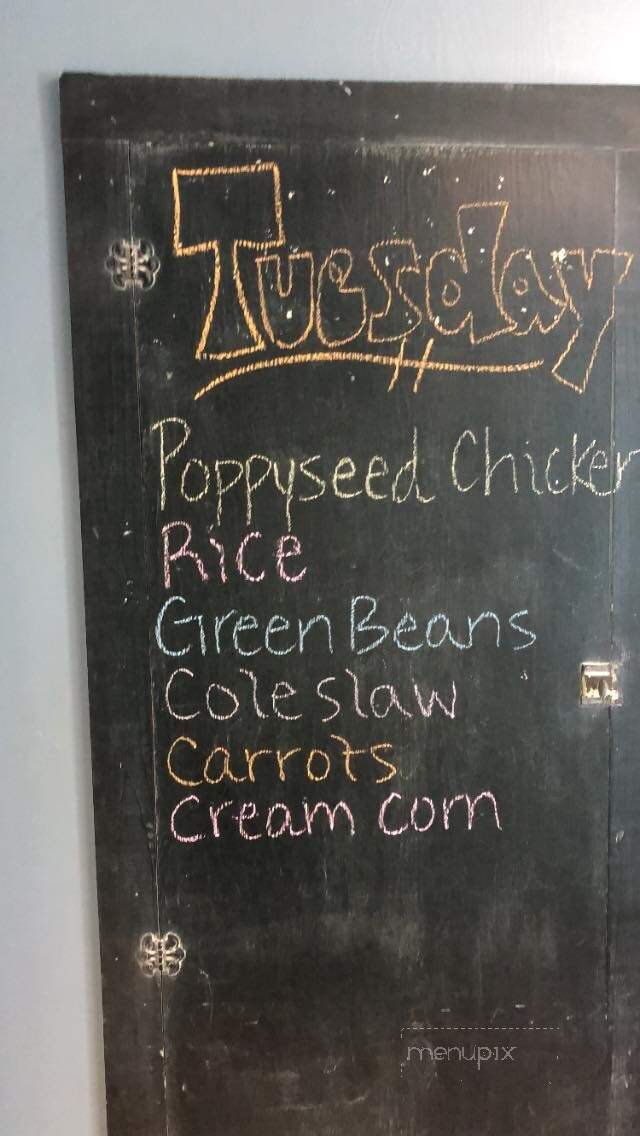 Tuesday
Poppyseed Chicken
Rice
Green Beans
Coleslaw
Carrots
Cream corn
menupix